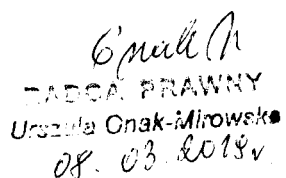 RADCA PRAWNY
Urszula Onak-Mirowska
08. 03. 2019r